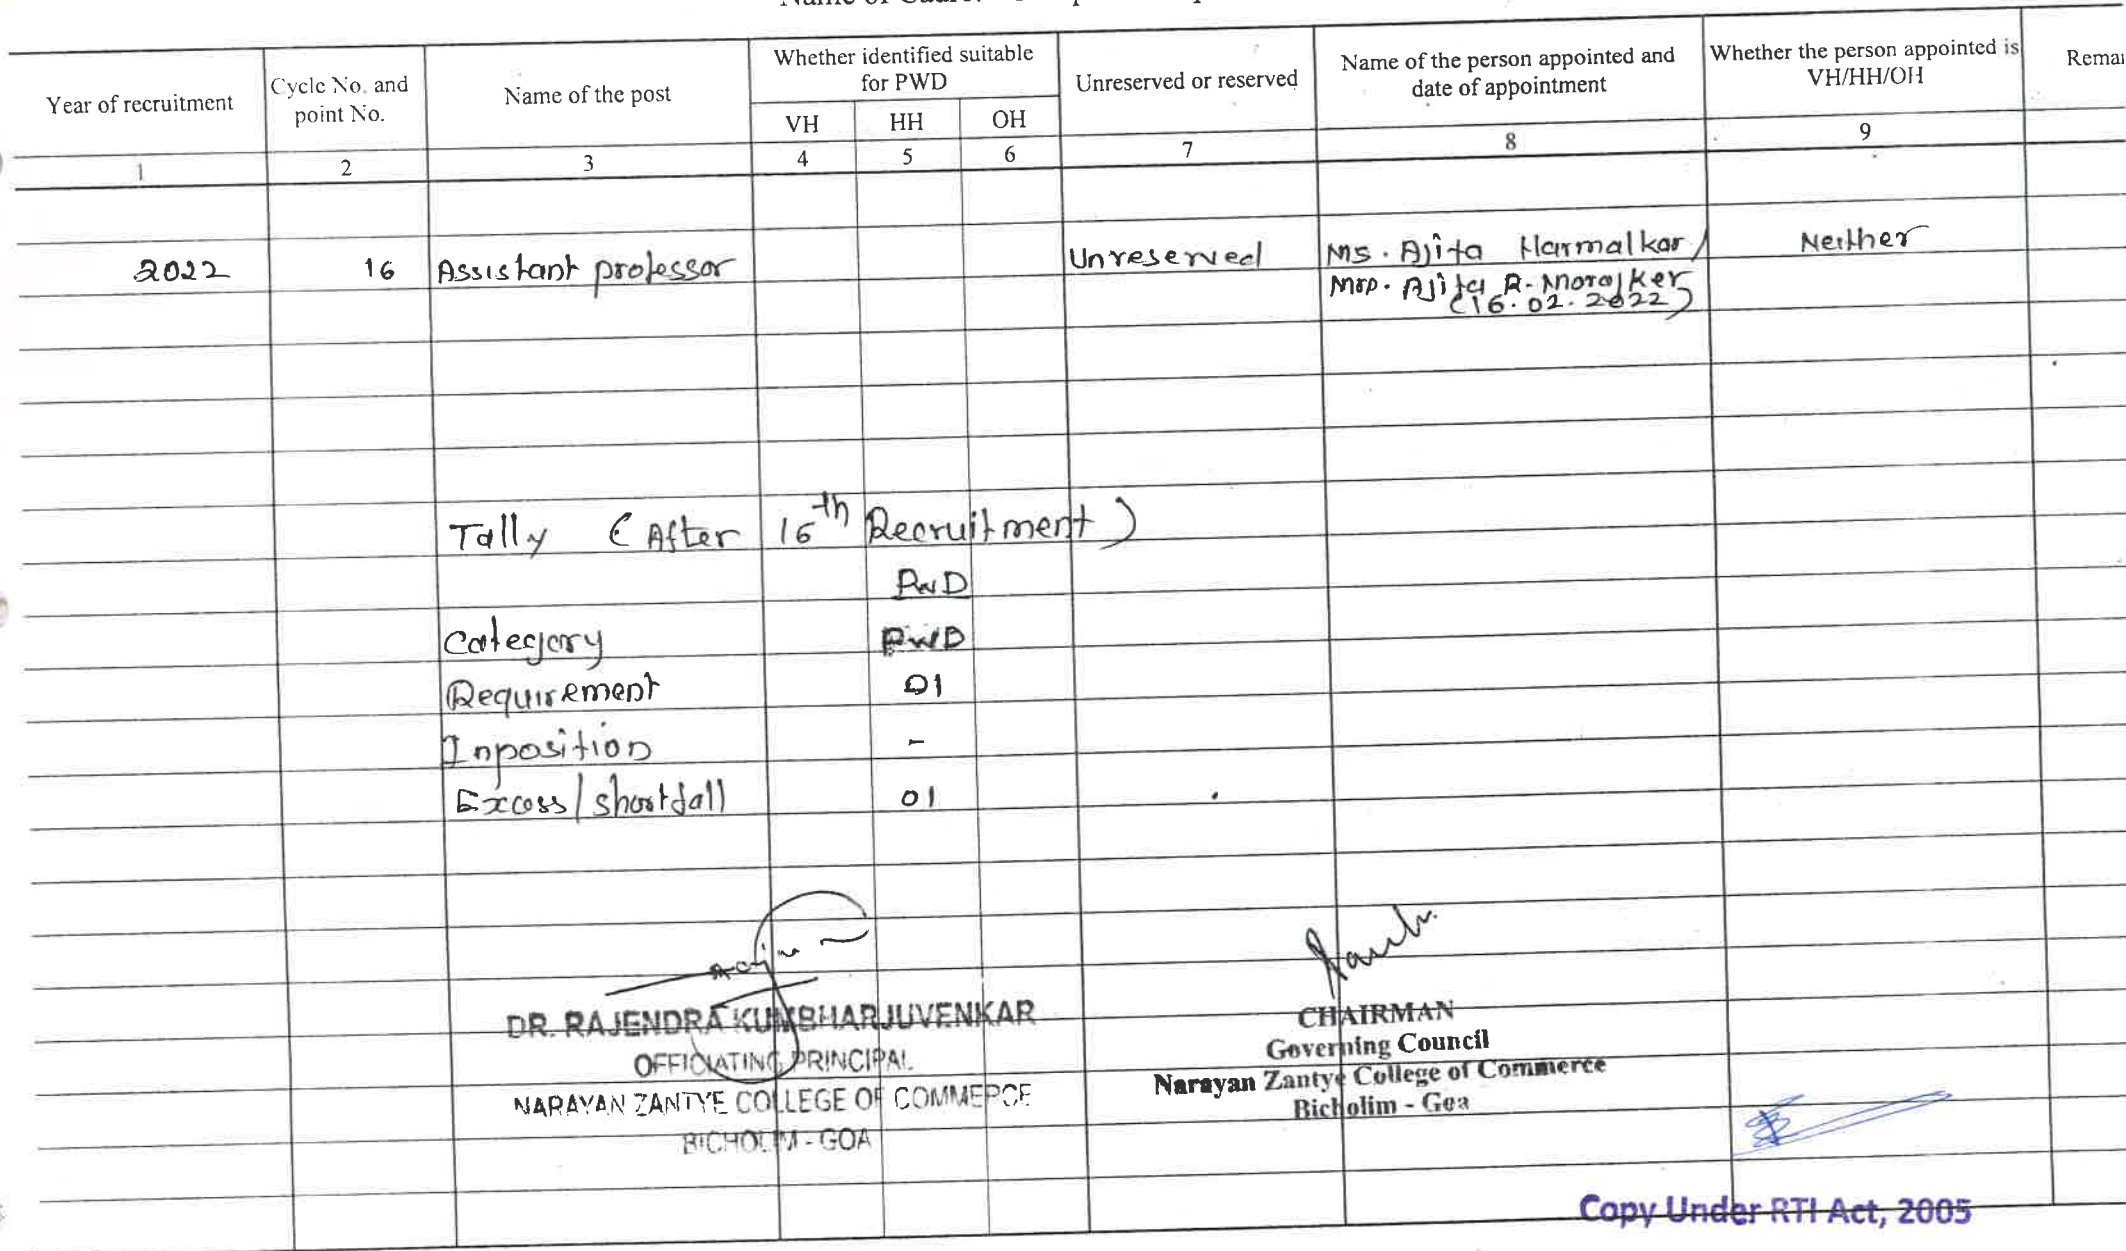 Name of Cadre:
Year of recruitment
Cycle No. and point No.
Name of the post
Whether identified suitable for PWD
VH
HH
OH
Unreserved or reserved
Name of the person appointed and date of appointment
Whether the person appointed is VH/HH/OH
Remar
1 2 3 4 5 6 7 8 9
2022 16 Assistant professor Unreserved Ms. Ajita Harmalkar/ Neither
Mrs. Ajita R. Morajker
(16.02.2022)
Tally (After 16th Recruitment)
PwD
Category PWD
Requirement 01
Inposition -
Excess/shortfall 01
DR. RAJENDRA KUMBHARJUVENKAR
OFFICIATING PRINCIPAL
NARAYAN ZANTYE COLLEGE OF COMMERCE
BICHOLIM - GOA
CHAIRMAN
Governing Council
Narayan Zantye College of Commerce
Bicholim - Goa
Copy Under RTI Act, 2005